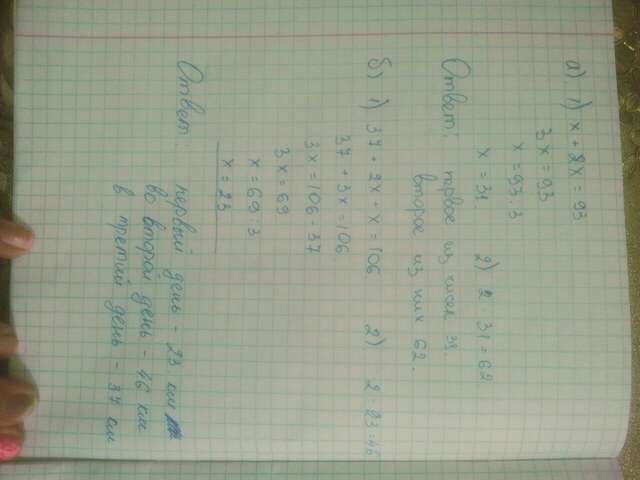 а) 1) x + 2x = 93
3x = 93
x = 93 : 3
x = 31 2) 2 · 31 = 62
Ответ: первое из чисел 31.
второе из них 62.
б) 1) 37 + 2x + x = 106 2) 2 · 23 = 46
37 + 3x = 106
3x = 106 - 37
3x = 69
x = 69 : 3
x = 23
Ответ: первый день - 23 км
во второй день - 46 км
в третий день - 37 км